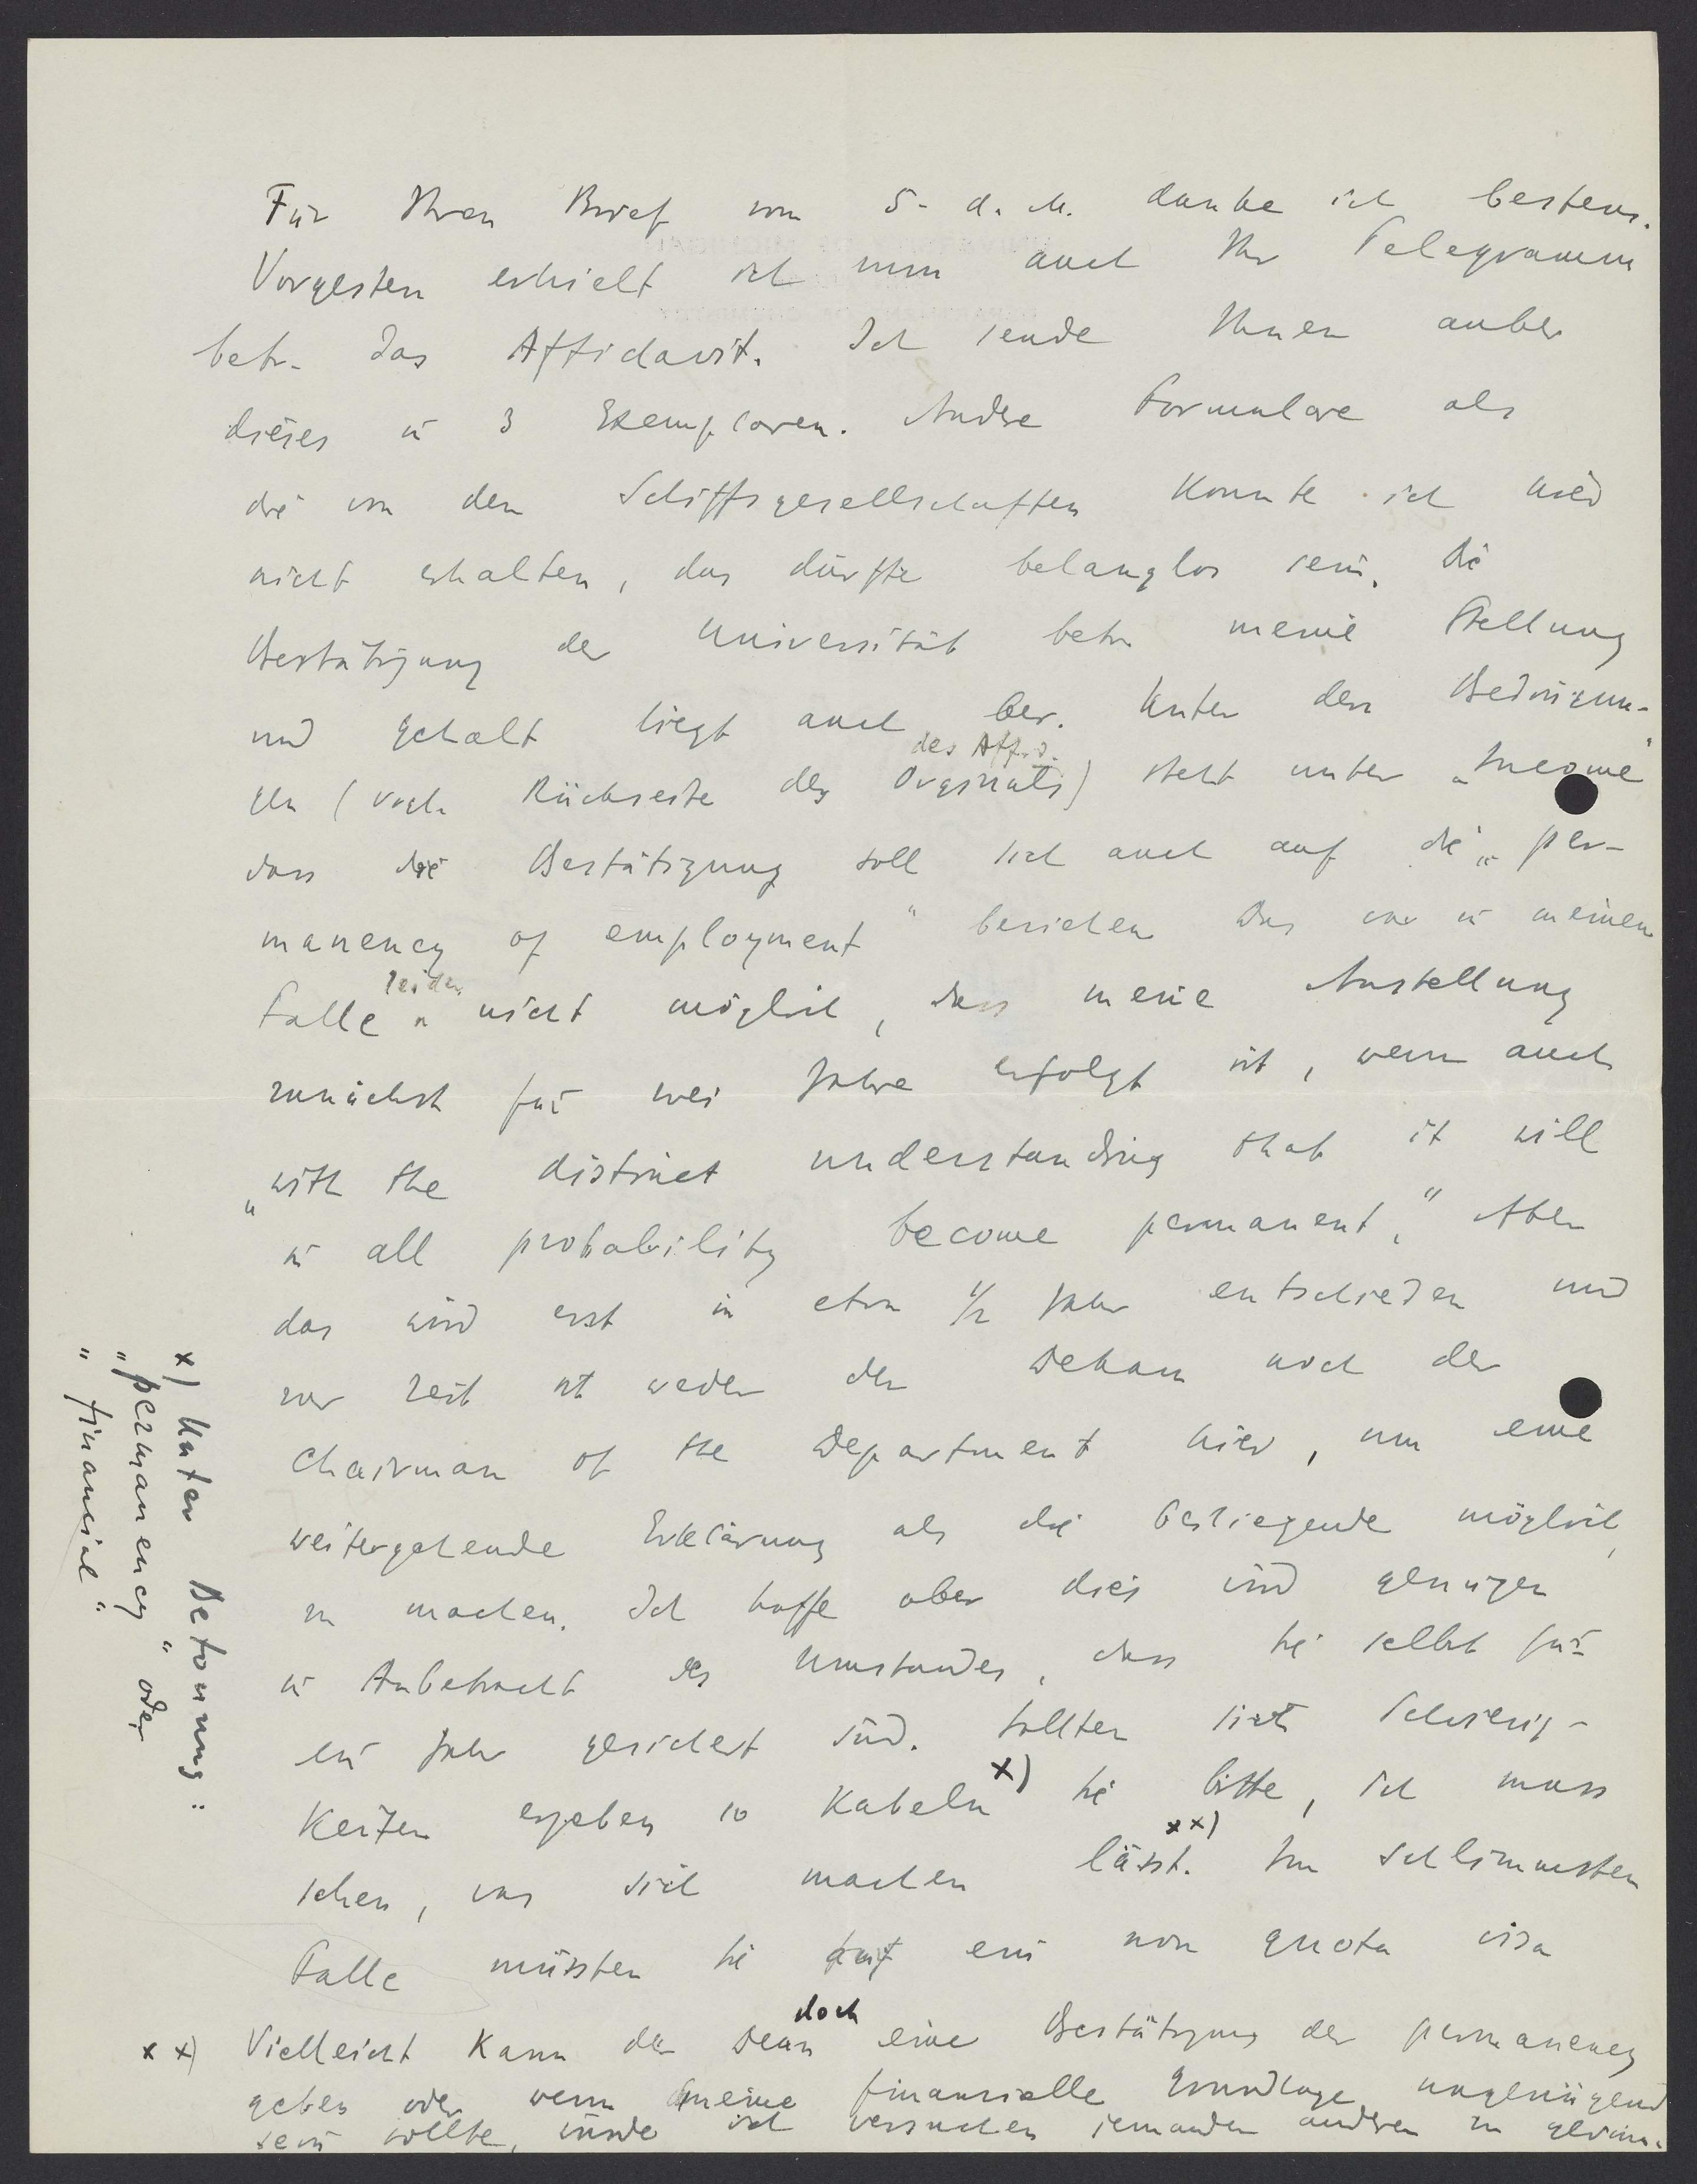 Für Ihren Brief vom 5. d. M. danke ich bestens.
Vorgestern erhielt ich nun auch Ihr Telegramm
betr. das Affidavit. Ich sende Ihnen anbei
dieses in 3 Exemplaren. Andre Formulare als
die von den Schiffsgesellschaften konnte ich hier
nicht erhalten, das dürfte belanglos sein. Die
Bestätigung der Universität betr. meine Stellung
und Gehalt liegt auch bei. Unter den Bedingun-
des Affid.
gen (vgl. Rückseite des Originals) steht unter „Income"
dass die Bestätigung soll sich auch auf die „per-
manency of employment" beziehen. Das war in meinem
leider
Falle nicht möglich, dass meine Anstellung
zunächst für zwei Jahre erfolgt ist, wenn auch
„with the distinct understanding that it will
in all probability become permanent." Aber
das wird erst in etwa 1/2 Jahr entschieden und
zur Zeit ist weder der Dekan noch der
Chairman of the Department hier, um eine
weitergehende Erklärung als die beiliegende möglich
zu machen. Ich hoffe aber dies wird genügen
in Anbetracht des Umstandes, dass Sie selbst für
ein Jahr gesichert sind. Sollten sich Schwierig-
keiten ergeben so kabeln x) Sie bitte, ich muss
sehen, was sich machen lässt. xx) Im schlimmsten
Falle müssten Sie auf ein non quota visa
xx) Vielleicht kann der Dean doch eine Bestätigung der permanency
geben oder wenn meine finanzielle Grundlage ungenügend
sein sollte, würde ich versuchen jemanden andren zu gewinn.
x) Unter Betonung:
„permanency" oder
„financial".